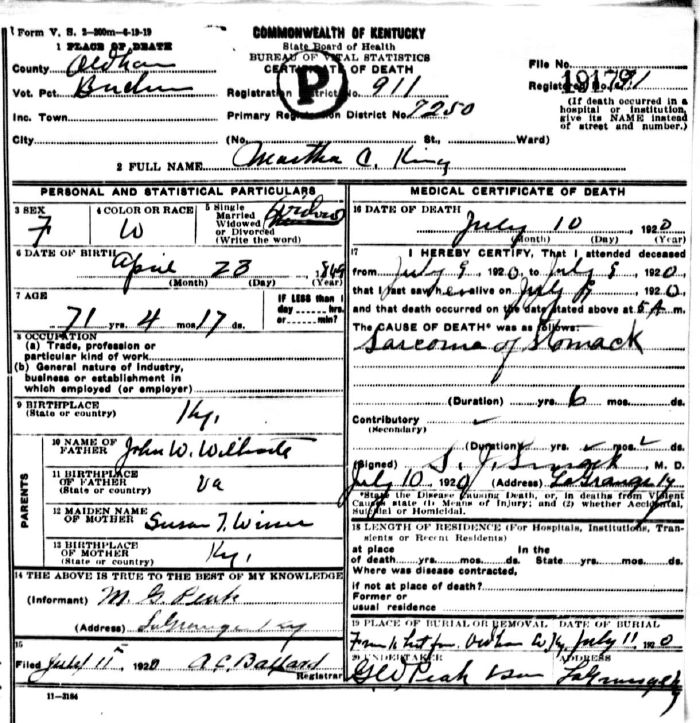 Form V. S. 2-200m-6-19-19
COMMONWEALTH OF KENTUCKY
State Board of Health
BUREAU OF VITAL STATISTICS
CERTIFICATE OF DEATH
P
1 PLACE OF DEATH
County Oldham
Vot. Pct.
Inc. Town
City
File No.
Registered No.
Registration District No. 911
Primary Registration District No. 7250
(If death occurred in a hospital or institution, give its NAME instead of street and number.)
(No. St., Ward)
2 FULL NAME Martha C. King
PERSONAL AND STATISTICAL PARTICULARS
3 SEX F
4 COLOR OR RACE W
5 Single Married Widowed or Divorced (Write the word) Widow
6 DATE OF BIRTH April 23, 1849
(Month) (Day) (Year)
7 AGE 71 yrs. 4 mos. 17 ds.
IF LESS than 1 day hrs. or min?
8 OCCUPATION
(a) Trade, profession or particular kind of work
(b) General nature of Industry, business or establishment in which employed (or employer)
9 BIRTHPLACE
(State or country) Ky.
PARENTS
10 NAME OF FATHER John W.
11 BIRTHPLACE OF FATHER (State or country) Va
12 MAIDEN NAME OF MOTHER Susan T.
13 BIRTHPLACE OF MOTHER (State or country) Ky.
14 THE ABOVE IS TRUE TO THE BEST OF MY KNOWLEDGE
(Informant) M. G. Peak
(Address) LaGrange Ky
15
Filed July 11 1920 A. C. Ballard
Registrar
11-3184
MEDICAL CERTIFICATE OF DEATH
16 DATE OF DEATH July 10, 1920
(Month) (Day) (Year)
17 I HEREBY CERTIFY, That I attended deceased
from July 9, 1920, to July 9, 1920
that I last saw her alive on July 1920
and that death occurred on the date stated above at 5 A m.
The CAUSE OF DEATH* was as follows:
Sarcoma of Stomack
(Duration) yrs. 6 mos. ds.
Contributory
(Secondary)
(Duration) yrs. mos. ds.
(Signed) S. J. M. D.
July 10 1920 (Address) LaGrange Ky
*State the Disease Causing Death, or, in deaths from Violent Causes state (1) Means of Injury; and (2) whether Accidental, Suicidal or Homicidal.
18 LENGTH OF RESIDENCE (For Hospitals, Institutions, Transients or Recent Residents)
at place of death yrs. mos. ds. In the State yrs. mos. ds.
Where was disease contracted,
if not at place of death?
Former or usual residence
19 PLACE OF BURIAL OR REMOVAL DATE OF BURIAL
Oldham Co Ky. July 11, 1920
20 UNDERTAKER ADDRESS
Peak & Son LaGrange Ky